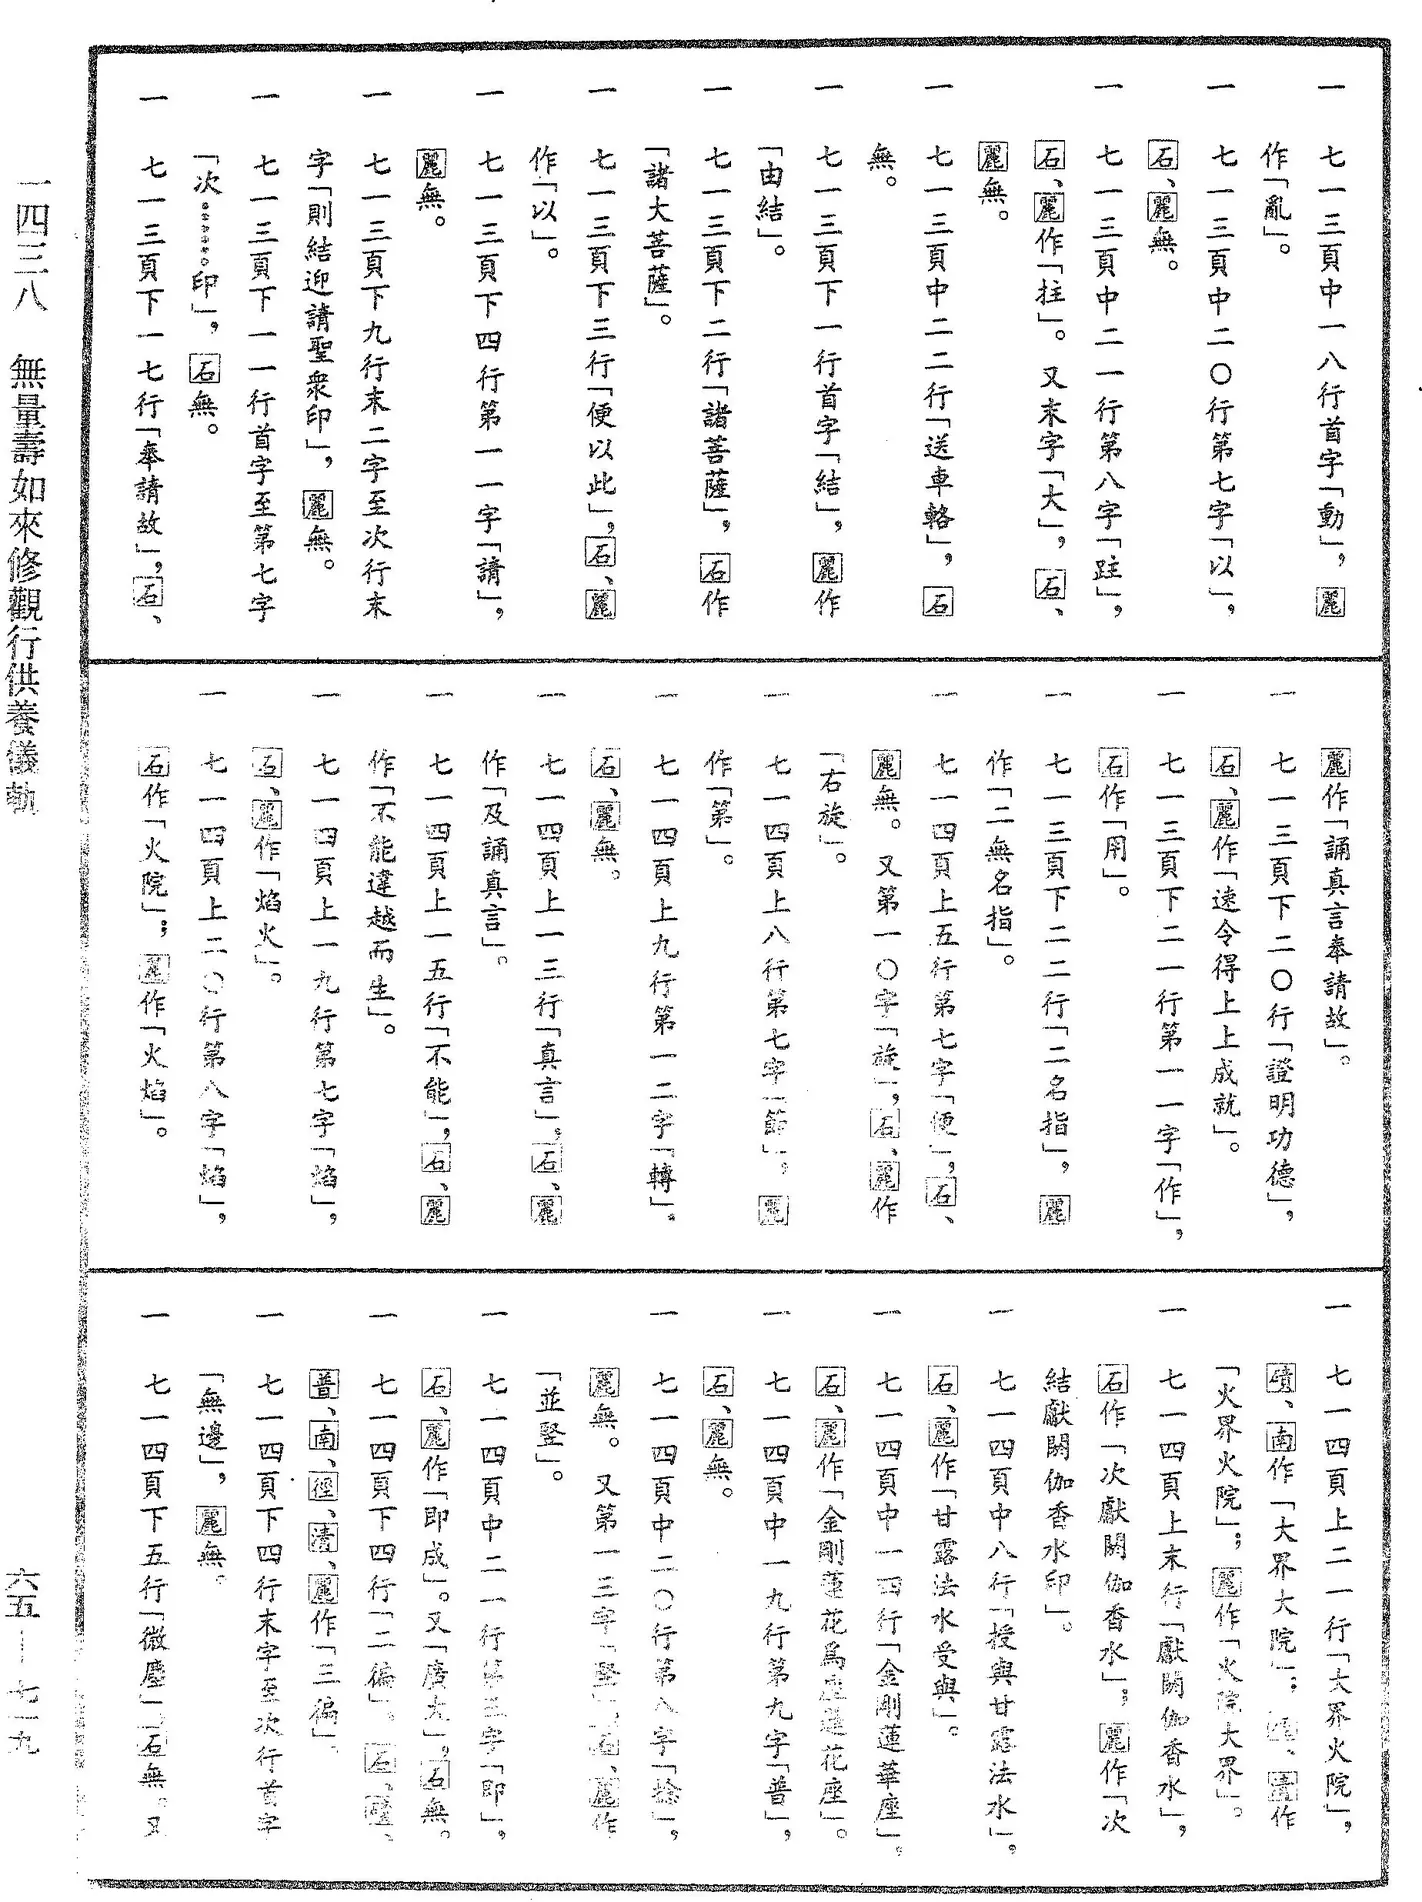 一 七一三頁中一八行首字「動」，麗
作「亂」。
一 七一三頁中二〇行第七字「以」，
石、麗無。
一 七一三頁中二一行第八字「跓」，
石、麗作「拄」。又末字「大」，石、
麗無。
一 七一三頁中二二行「送車輅」，石
無。
一 七一三頁下一行首字「結」，麗作
「由結」。
一 七一三頁下二行「諸菩薩」，石作
「諸大菩薩」。
一 七一三頁下三行「便以此」，石、麗
作「以」。
一 七一三頁下四行第一一字「請」，
麗無。
一 七一三頁下九行末二字至次行末
字「則結迎請聖衆印」，麗無。
一 七一三頁下一一行首字至第七字
「次……印」，石無。
一 七一三頁下一七行「奉請故」，石、
麗作「誦真言奉請故」。
一 七一三頁下二〇行「證明功德」，
石、麗作「速令得上上成就」。
一 七一三頁下二一行第一一字「作」，
石作「用」。
一 七一三頁下二二行「二名指」，麗
作「二無名指」。
一 七一四頁上五行第七字「便」，石、
麗無。又第一〇字「旋」，石、麗作
「右旋」。
一 七一四頁上八行第七字「節」，麗
作「第」。
一 七一四頁上九行第一二字「轉」。
石、麗無。
一 七一四頁上一三行「真言」，石、麗
作「及誦真言」。
一 七一四頁上一五行「不能」，石、麗
作「不能違越而生」。
一 七一四頁上一九行第七字「焰」，
石、麗作「焰火」。
一 七一四頁上二〇行第八字「焰」，
石作「火院」；麗作「火焰」。
一 七一四頁上二一行「大界火院」，
磧、南作「大界大院」；、清作
「火界火院」；麗作「火院大界」。
一 七一四頁上末行「獻閼伽香水」，
石作「次獻閼伽香水」；麗作「次
結獻閼伽香水印」。
一 七一四頁中八行「授與甘露法水」，
石、麗作「甘露法水受與」。
一 七一四頁中一四行「金剛蓮華座」。
石、麗作「金剛蓮花爲座蓮花座」。
一 七一四頁中一九行第九字「普」，
石、麗無。
一 七一四頁中二〇行第八字「捻」，
麗無。又第一三字「堅」，石、麗作
「並堅」。
一 七一四頁中二一行第三字「即」，
石、麗作「即成」。又「廣大」，石無。
一 七一四頁下四行「二徧」。石、磧、
普、南、徑、清、麗作「三徧」。
一 七一四頁下四行末字至次行首字
「無邊」，麗無。
一 七一四頁下五行「微塵」，石無。又
一四三八 無量壽如來修觀行供養儀軌
六五—七一九